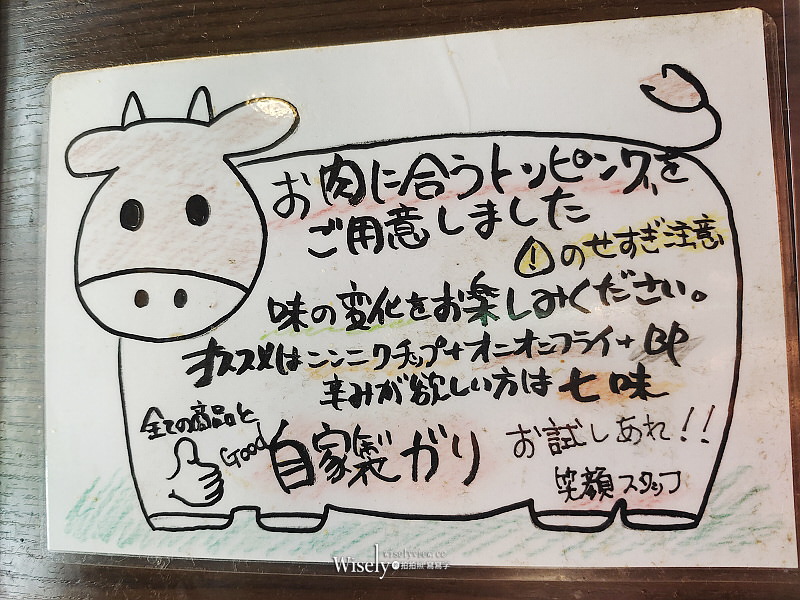 お肉に合うトッピングを
ご用意しました
! のせすぎ注意
味の変化をお楽しみください。
オススメはニンニクチップ+オニオンフライ+BP
辛みが欲しい方は七味
全ての商品と
Good
自家製ガリ
お試しあれ!!
笑顔スタッフ
wiselyview.cc
Wisely 拍拍照寫寫字